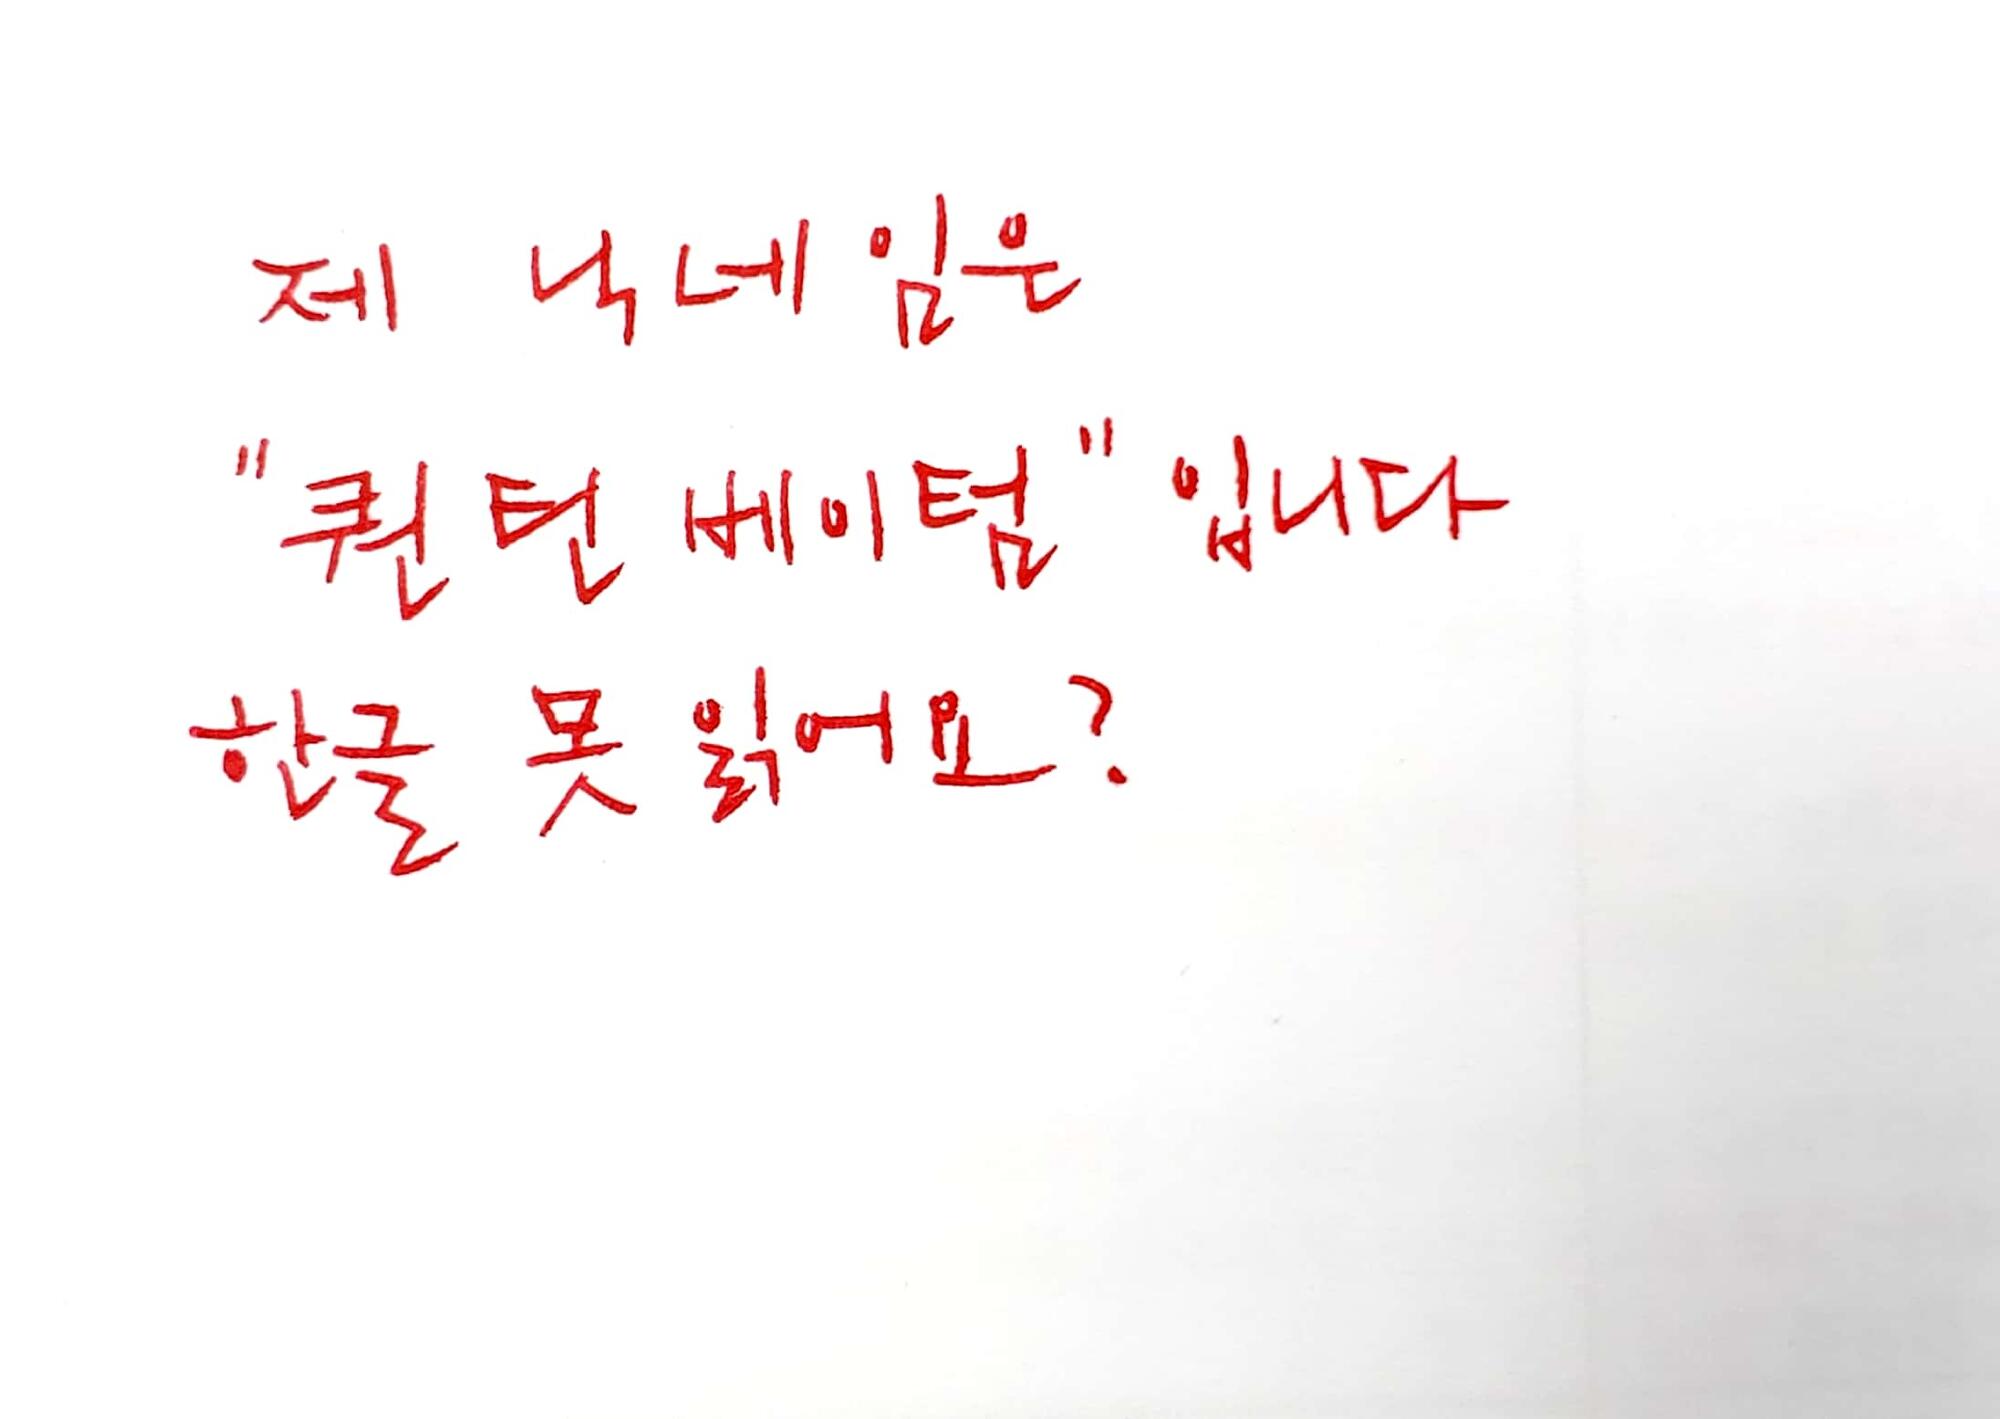 제 닉네임은
"퀀턴 베이텀" 입니다
한글 못 읽어요?